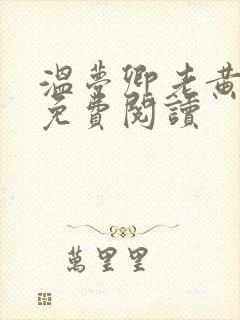 溫夢卿老黃
免費閱讀
萬里里